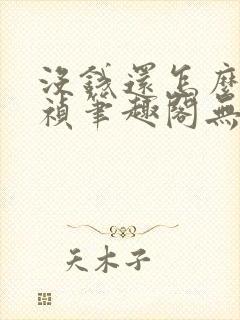 沒錢還怎麼
禎筆趣閣無
天木子